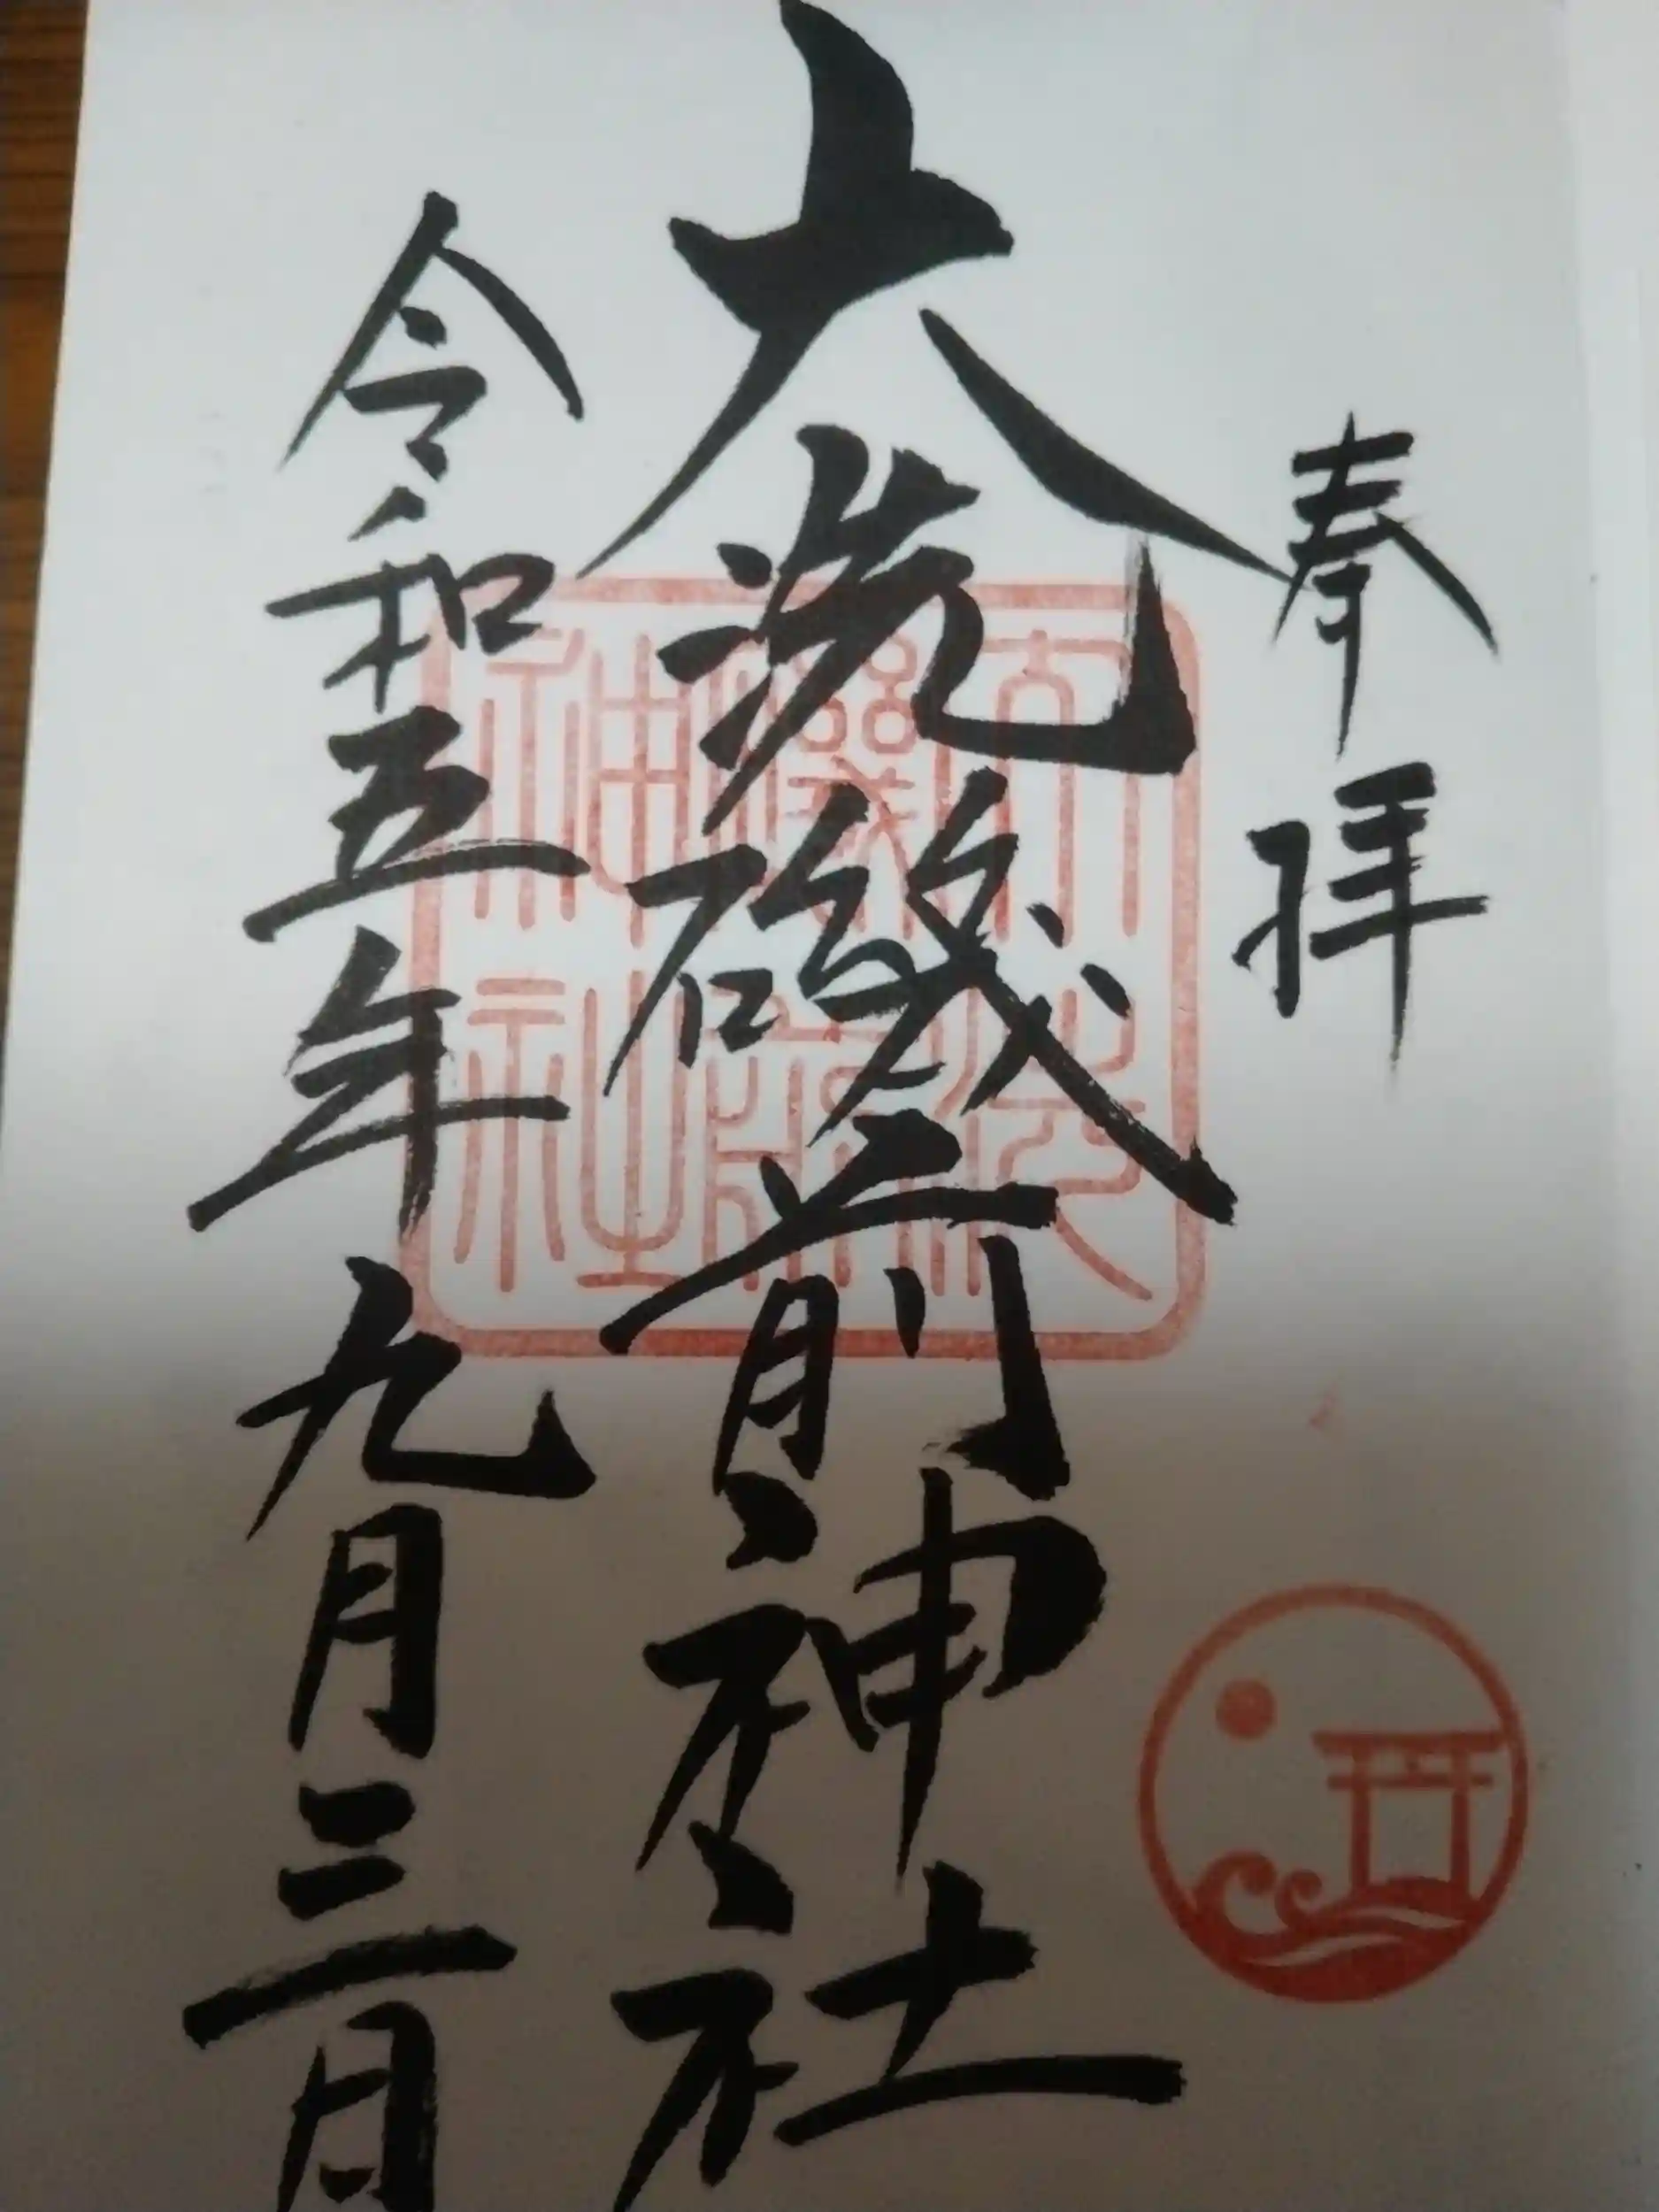 奉拝
大洗磯前神社
大洗磯前神社
令和五年九月三日